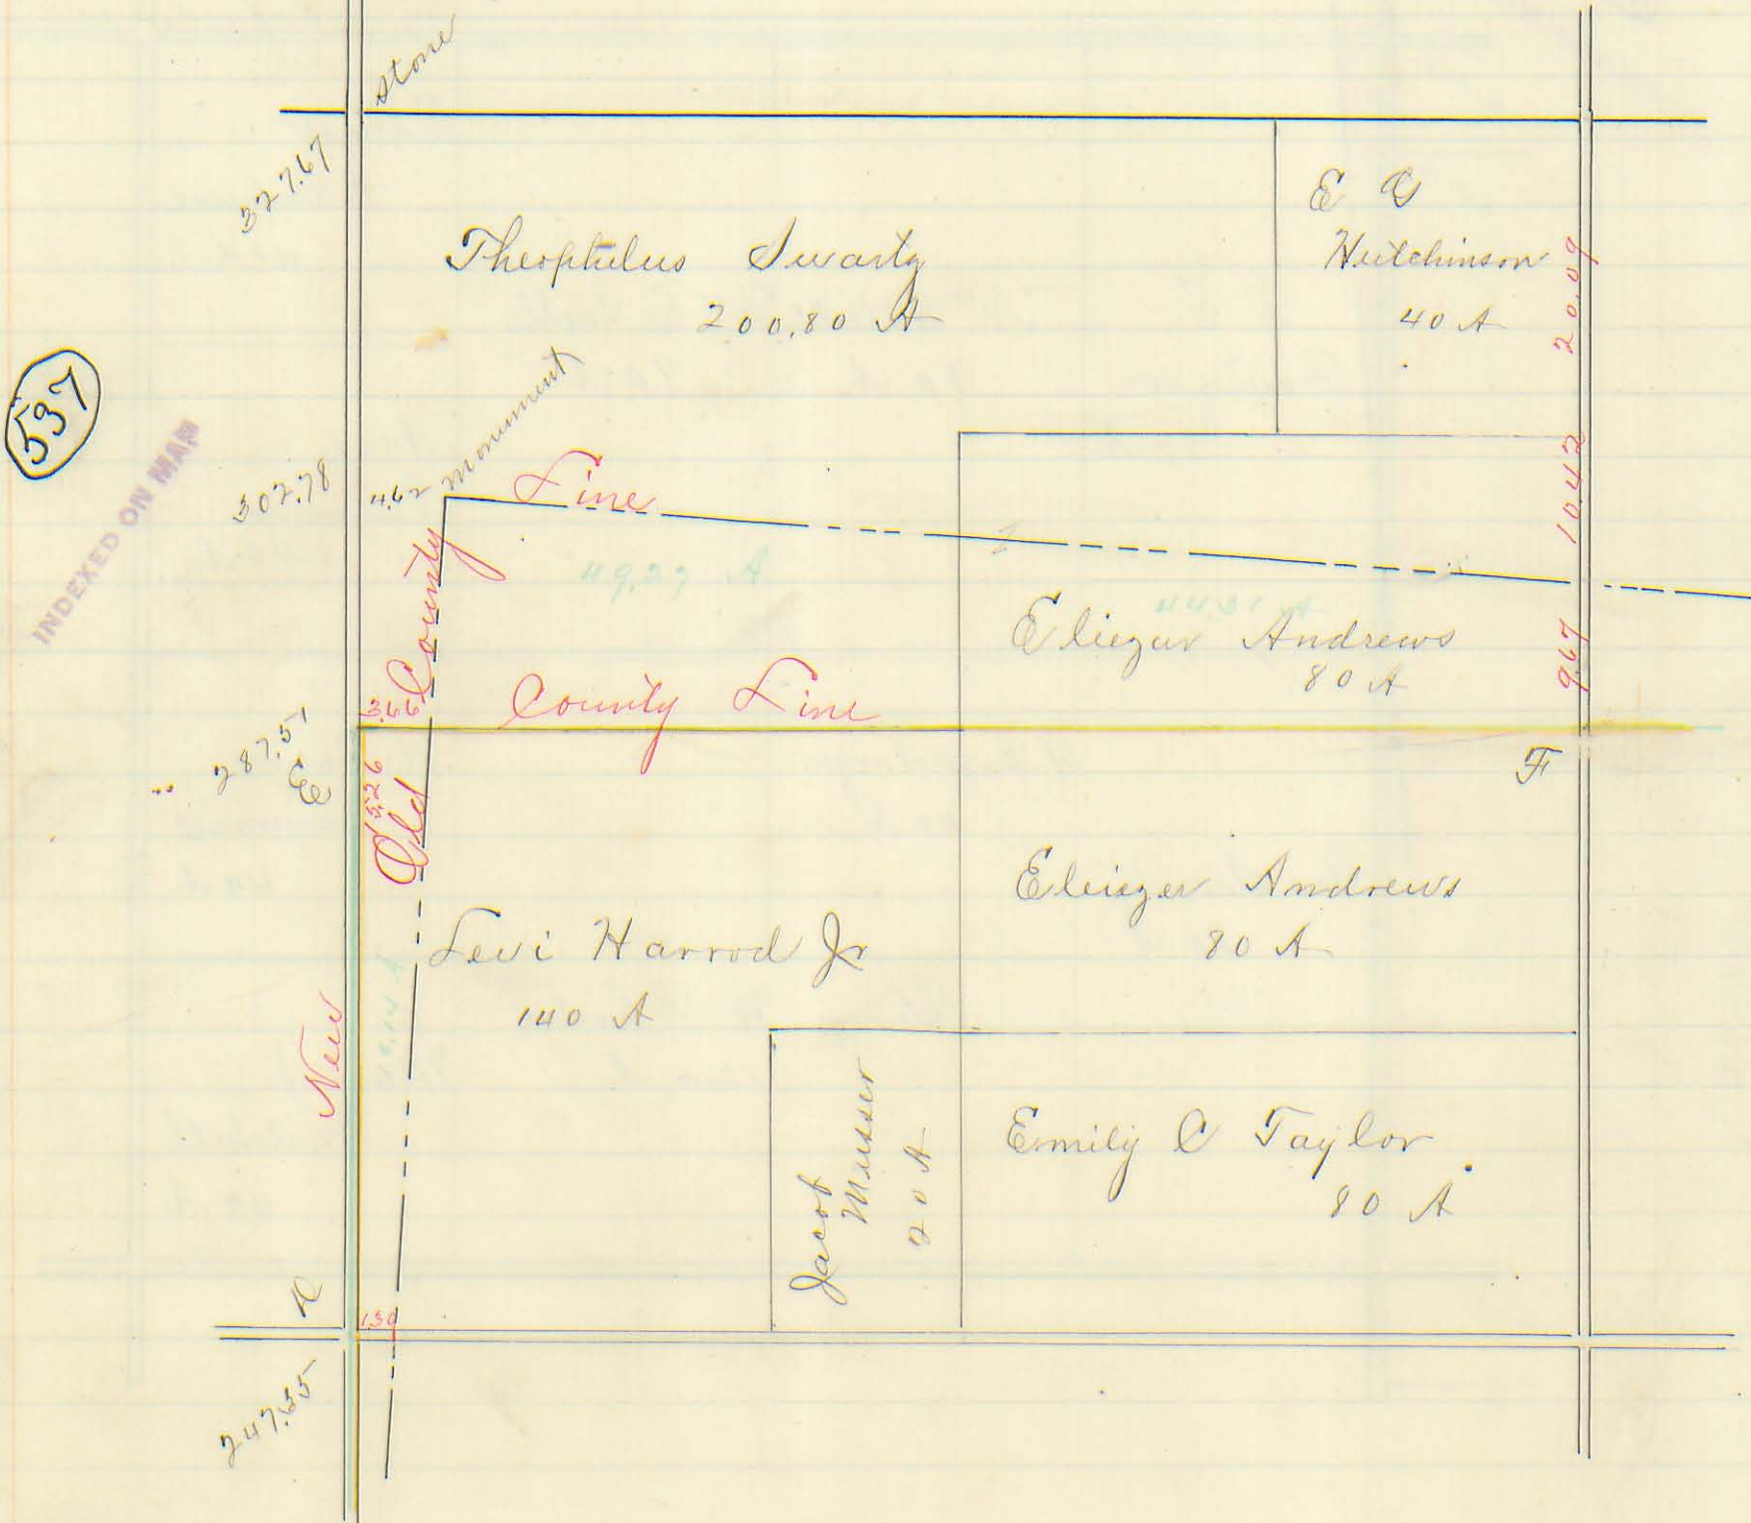 stone
327.67
Theophulus Swartz
200.80 A
E G
Hutchinson
40 A
20.09
537
INDEXED ON MAP
302.78
4.62 Monument
Line
10.42
County
49.27 A
44.31 A
Eliezar Andrews
80 A
9.67
3.66
County Line
287.51
E
F
15.26
Old
Eleizer Andrews
80 A
Levi Harrod Jr
140 A
New
Jacob
Musser
20 A
Emily C Taylor
80 A
D
1.30
247.35